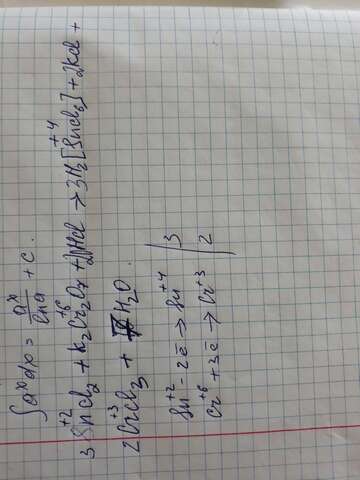 ∫aˣdx = aˣ/lna + C.
3Sn⁺²Cl₂ + K₂Cr⁺⁶₂O₇ + HCl → 3H₂[Sn⁺⁴Cl₆] + 2KCl +
2Cr⁺³Cl₃ + H₂O
Sn⁺² - 2ē → Sn⁺⁴ | 3
Cr⁺⁶ + 3ē → Cr⁺³ | 2